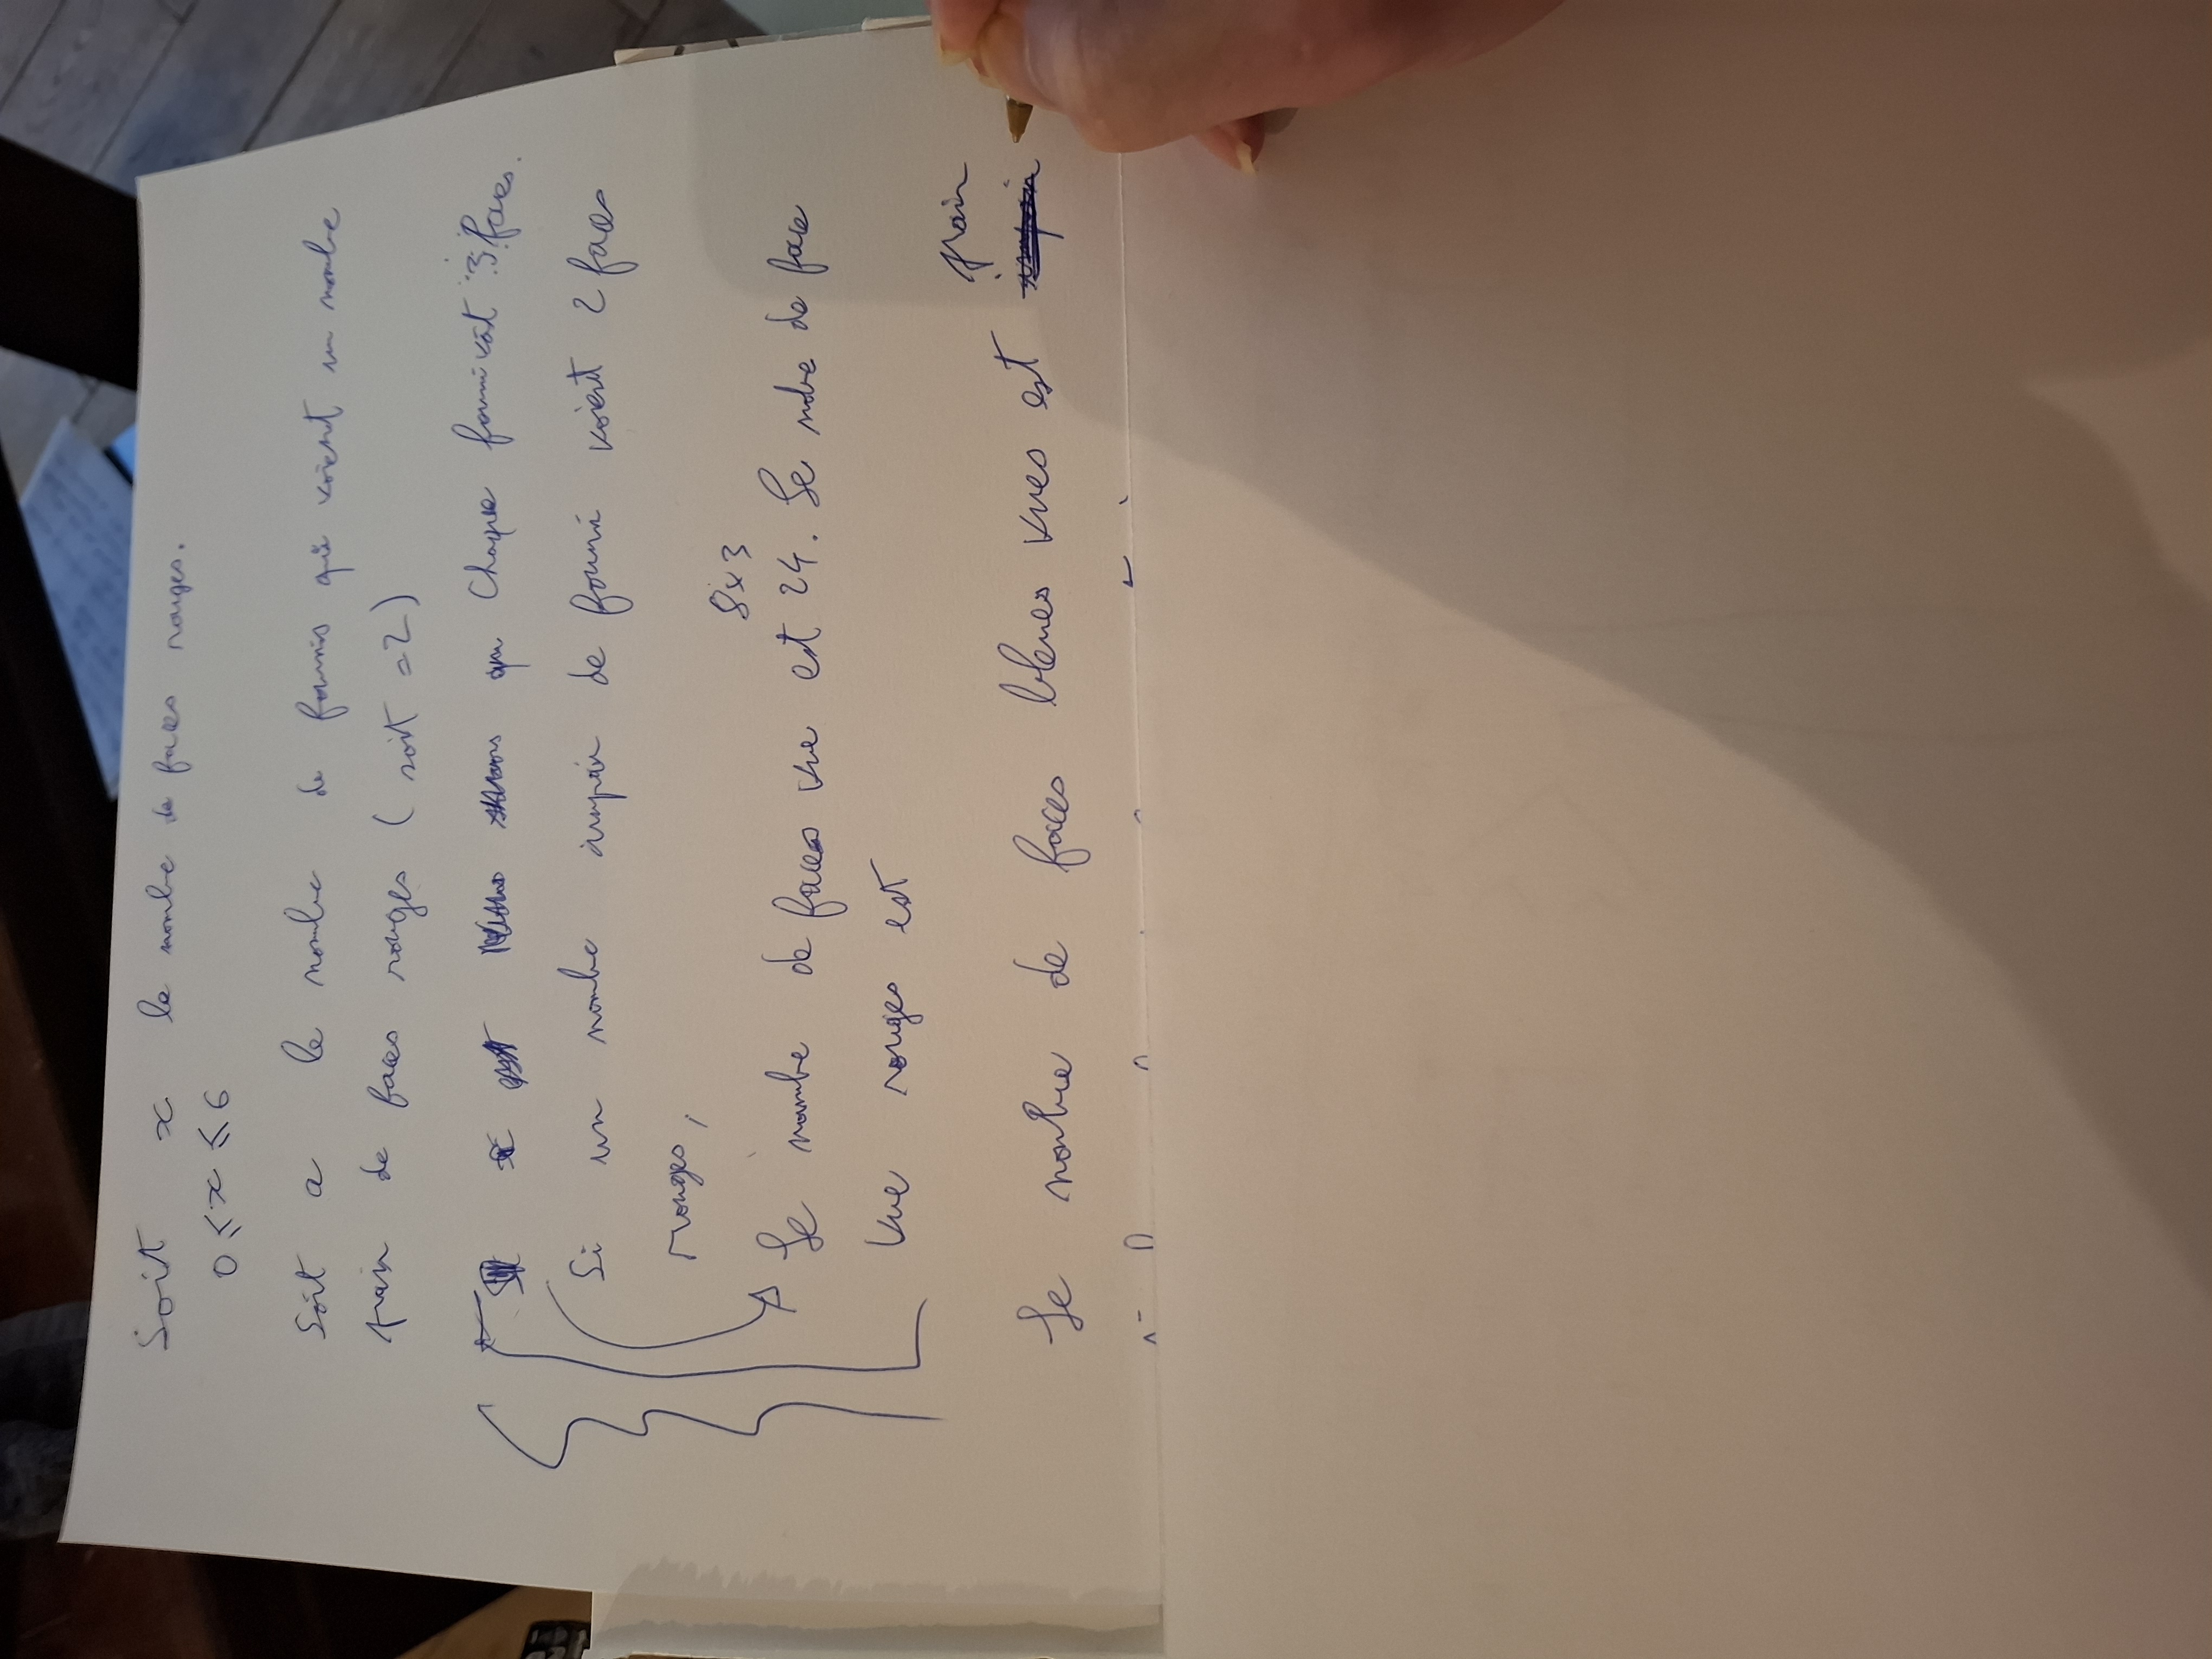 Soit x le nombre de faces rouges.
0 ⩽ x ⩽ 6
Soit a le nombre de fourmis qui voient un nombre
pair de faces rouges (soit =2)
Chaque fourmi voit 3 faces.
Si un nombre impair de fourmi voient 2 faces
rouges,
8x3
Le nombre de faces vue est 24. Le nobre de face
vue rouges est
pair
Le nombre de faces bleues vues est impair